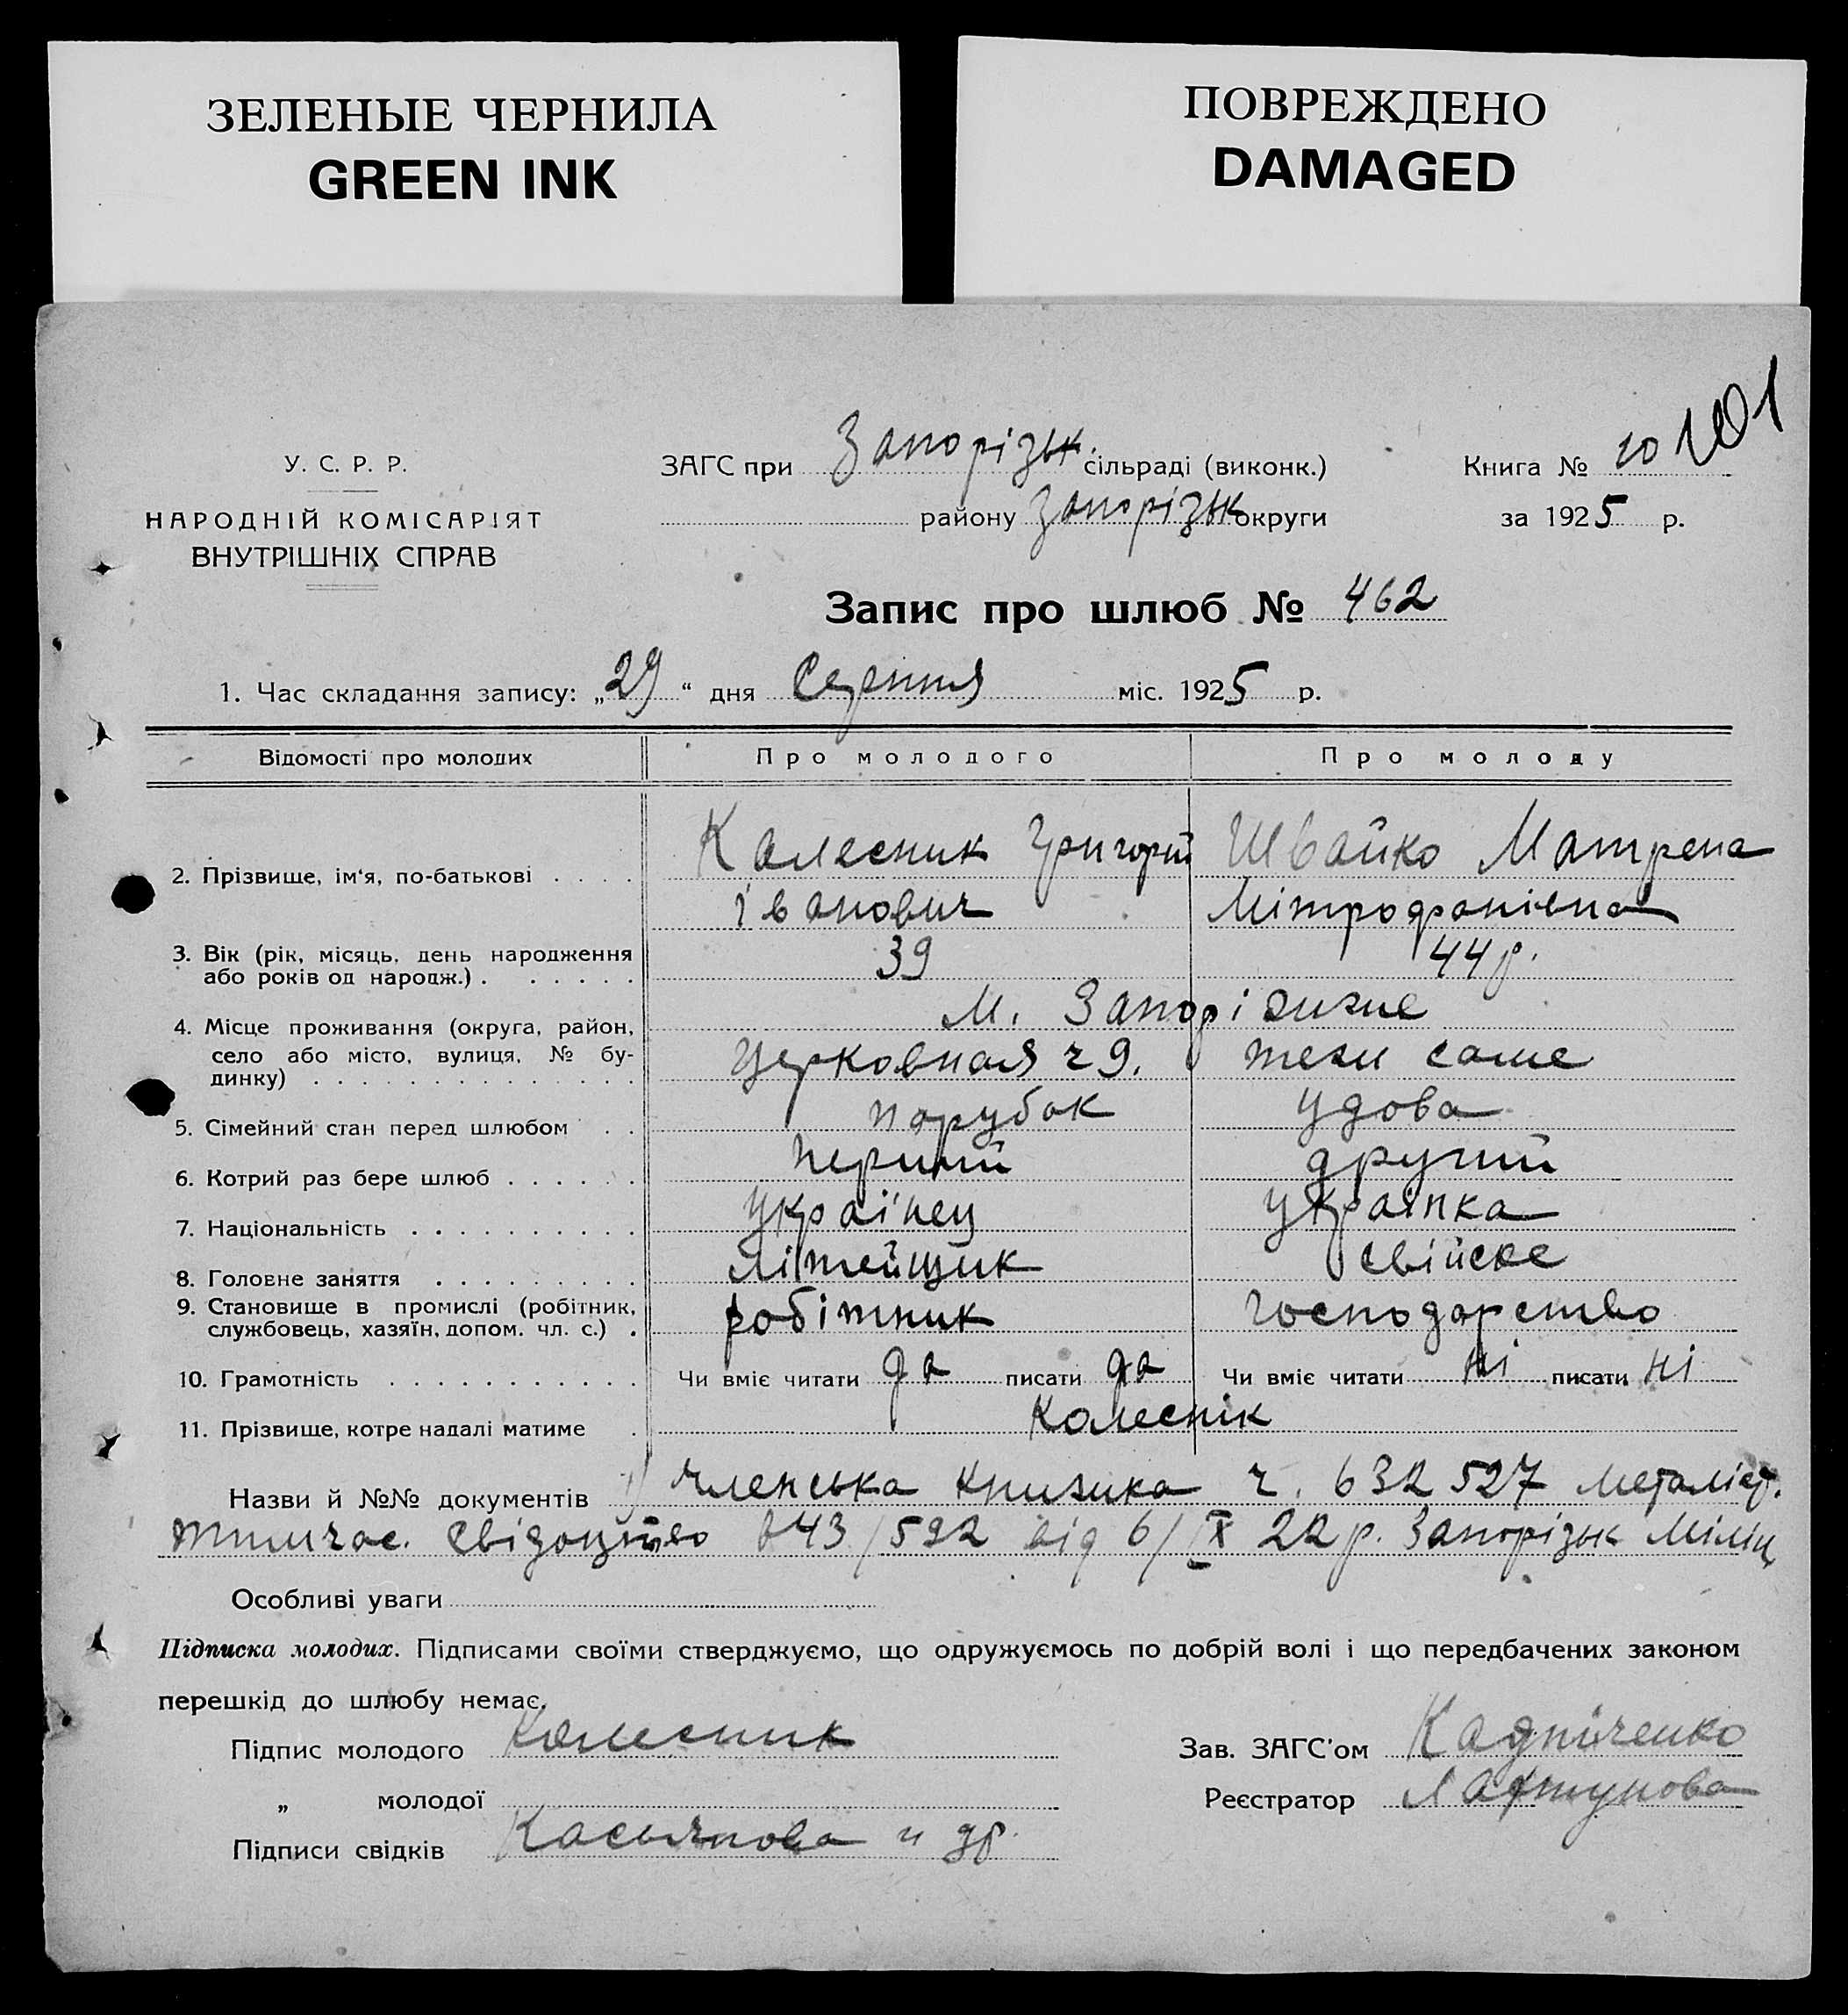 ЗЕЛЕНЫЕ ЧЕРНИЛА
GREEN INK
ПОВРЕЖДЕНО
DAMAGED
201
У. С. Р. Р.
НАРОДНІЙ КОМІСАРІЯТ
ВНУТРІШНІХ СПРАВ
ЗАГС при Запорізьк. сільраді (виконк.)
району Запорізьк округи
Книга № 10
за 1925 р.
Запис про шлюб № 462
1. Час складання запису: „29“ дня Серпня міс. 1925 р.
Відомості про молодих Про молодого Про молоду
2. Прізвище, ім'я, по-батькові . . . . Калесник Григорій Швайко Матрена
Іванович Мітрофанівна
3. Вік (рік, місяць, день народження 39 44 р.
або років од народж.) . . . . . .
4. Місце проживання (округа, район, м. Запоріжжє
село або місто, вулиця, № бу- Церковная ч 9. теж саме
динку) . . . . . . . . . . . . . .
5. Сімейний стан перед шлюбом . . парубок удова
6. Котрий раз бере шлюб . . . . . . перший другий
7. Національність . . . . . . . . . . українец українка
8. Головне заняття . . . . . . . . . літейщик свійске
9. Становище в промислі (робітник, робітник господарство
службовець, хазяїн, допом. чл. с.) .
10. Грамотність . . . . . . . . . . . Чи вміє читати да писати да Чи вміє читати ні писати ні
11. Прізвище, котре надалі матиме . Колеснік
Назви й №№ документів 1) Членська книжка ч. 632527 Металіст.
тимчас. свідоцтво 843/592 від 6/IX 22 р. Запорізьк Міліц
Особливі уваги
Підписка молодих. Підписами своїми стверджуємо, що одружуємось по добрій волі і що передбачених законом
перешкід до шлюбу немає.
Підпис молодого Колесник
„ молодої
Підписи свідків Касьянова и др.
Зав. ЗАГС'ом
Реєстратор